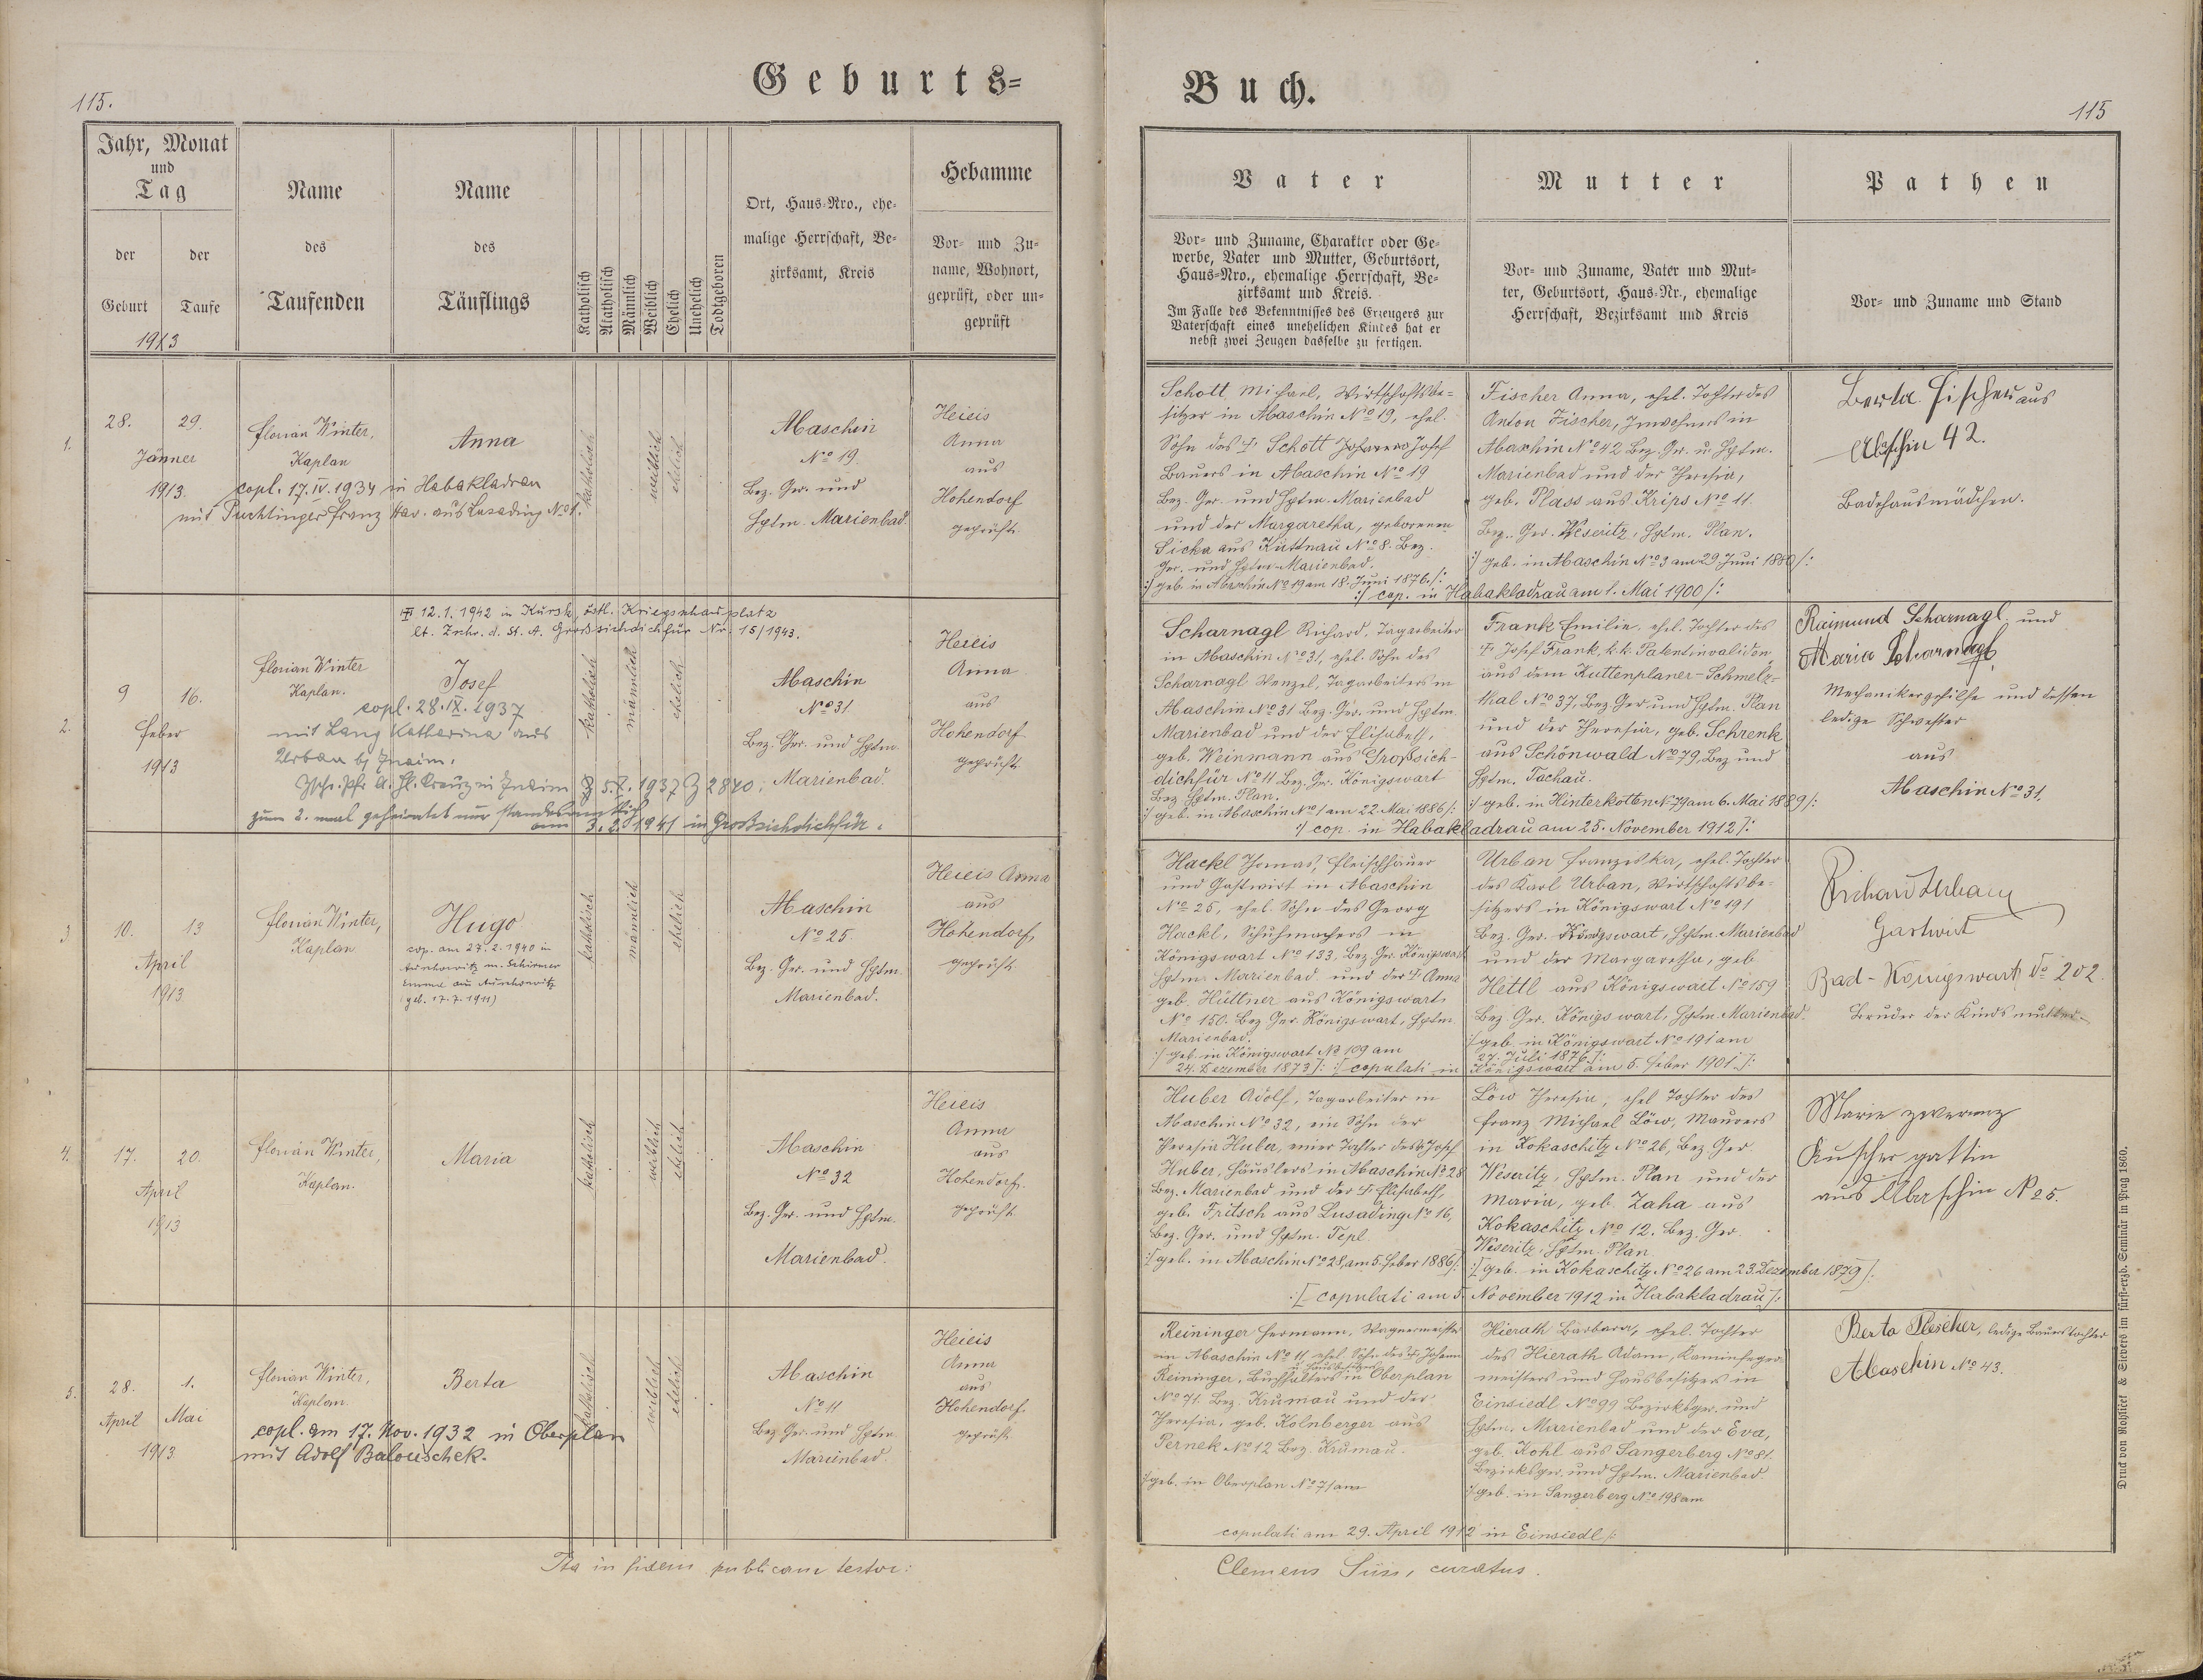 Geburts=
Buch.
115.
115
Jahr, Monat
und
Tag
der Geburt
der Taufe
1913
Name
des
Taufenden
Name
des
Täuflings
Katholisch
Akatholisch
Männlich
Weiblich
Ehelich
Unehelich
Todtgeboren
Ort, Haus-Nro., ehe-
malige Herrschaft, Be-
zirksamt, Kreis
Hebamme
Vor- und Zu-
name, Wohnort,
geprüft, oder un-
geprüft
Vater
Vor- und Zuname, Charakter oder Ge-
werbe, Vater und Mutter, Geburtsort,
Haus-Nro., ehemalige Herrschaft, Be-
zirksamt und Kreis.
Im Falle des Bekenntnisses des Erzeugers zur
Vaterschaft eines unehelichen Kindes hat er
nebst zwei Zeugen dasselbe zu fertigen.
Mutter
Vor- und Zuname, Vater und Mut-
ter, Geburtsort, Haus-Nr., ehemalige
Herrschaft, Bezirksamt und Kreis
Pathen
Vor- und Zuname und Stand
1.
28. 29.
Jänner
1913.
Florian Winter,
Kaplan
Anna
copl. 17.IV.1934 in Habakladrau
mit Puchtinger Franz aus Lusading No 1.
katholisch
weiblich
ehelich
Abaschin
No 19.
Bez. Ger. und
Hptm. Marienbad.
Heieis
Anna
aus
Hohendorf
geprüft.
Schott Michael, Wirtschaftsbe-
sitzer in Abaschin No 19, ehel.
Sohn des † Schott Josef
Bauers in Abaschin No 19
Bez. Ger. und Hptm. Marienbad
und der Margaretha, geborenen
Sicka aus Kuttnau No 8. Bez.
Ger. und Hptm. Marienbad.
:/ geb. in Abaschin No 19 am 18. Juni 1876 /:
Fischer Anna, ehel. Tochter des
Anton Fischer, Inwohners in
Abaschin No 42 Bez. Ger. u. Hptm.
Marienbad und der Theresia,
geb. Plass aus Krips No 11.
Bez. Ger. Weseritz, Hptm. Plan.
:/ geb. in Abaschin No 3 am 29. Juni 1880 /:
:/ cop. in Habakladrau am 1. Mai 1900 /:
Berta Fischer aus
Abaschin 42.
Badehausmädchen.
2.
9 16.
Feber
1913
† 12.1.1942 in Kursk, östl. Kriegsschauplatz
lt. Zuschr. d. St. A. Großsichdichfür Nr. 15/1943.
Florian Winter
Kaplan.
Josef
copl. 28.IX.1937
mit Lang Katharina aus
Urbau bj Znaim.
Zschr. Pfr. A. Hl. Kreuz in Znaim 5.X.1937 Z 2840;
zum 2. mal geheiratet nur standesamtlich
am 3.2.1941 in Großsichdichfür.
katholisch
männlich
ehelich
Abaschin
No 31.
Bez. Ger. und Hptm.
Marienbad.
Heieis
Anna
aus
Hohendorf
geprüft.
Scharnagl Richard, Tagarbeiter
in Abaschin No 31, ehel. Sohn des
Scharnagl Wenzel, Tagarbeiters in
Abaschin No 31 Bez. Ger. und Hptm.
Marienbad und der Elisabeth,
geb. Weinmann aus Großsich-
dichfür No 11 Bez. Ger. Königswart
Bez. Hptm. Plan.
:/ geb. in Abaschin No 1 am 22. Mai 1886 /:
Frank Emilie, ehel. Tochter des
† Josef Frank, k.k. Patentinvaliden
aus dem Kuttenplaner-Schmelz-
thal No 37, Bez. Ger. und Hptm. Plan
und der Theresia, geb. Schrenk
aus Schönwald No 79, Bez. und
Hptm. Tachau.
:/ geb. in Hinterkotten No 79 am 6. Mai 1889 /:
:/ cop. in Habakladrau am 25. November 1912 /:
Raimund Scharnagl, und
Maria Scharnagl,
Mechanikergehilfe und dessen
ledige Schwester
aus
Abaschin No 31.
3
10. 13
April
1913
Florian Winter,
Kaplan
Hugo
cop. am 27.2.1940 in
Auschowitz m. Schirmer
Emma aus Auschowitz
(geb. 17.7.1911)
katholisch
männlich
ehelich
Abaschin
No 25
Bez. Ger. und Hptm.
Marienbad.
Heieis Anna
aus
Hohendorf,
geprüft
Hackl Thomas, Fleischhauer
und Gastwirt in Abaschin
No 25, ehel. Sohn des Georg
Hackl, Schuhmachers in
Königswart No 133, Bez. Ger. Königswart
Hptm. Marienbad und der † Anna
geb. Hüttner aus Königswart
No 150. Bez. Ger. Königswart, Hptm
Marienbad.
:/ geb. in Königswart No 109 am
24. Dezember 1873 /:
Urban Franziska, ehel. Tochter
des Karl Urban, Wirtschaftsbe-
sitzers in Königswart No 191
Bez. Ger. Königswart, Hptm. Marienbad
und der Margaretha, geb.
Hettl aus Königswart No 159
Bez. Ger. Königswart, Hptm. Marienbad.
:/ geb. in Königswart No 191 am
27. Juli 1876 /:
:/ copulati in Königswart am 5. Feber 1901 /:
Richard Urban
Gastwirt
Bad-Königswart No 202.
Bruder der Kindsmutter
4.
17. 20.
April
1913
Florian Winter,
Kaplan.
Maria
katholisch
weiblich
ehelich
Abaschin
No 32
Bez. Ger. und Hptm.
Marienbad.
Heieis
Anna
aus
Hohendorf.
geprüft
Huber Adolf, Tagarbeiter in
Abaschin No 32, ein Sohn der
Theresia Huber, einer Tochter des † Josef
Huber, Häuslers in Abaschin No 28
Bez. Marienbad und der † Elisabeth,
geb. Fritsch aus Lusading No 16,
Bez. Ger. und Hptm. Tepl.
:/ geb. in Abaschin No 28, am 5. Feber 1886 /:
Löw Theresia, ehel. Tochter des
Franz Michael Löw, Maurers
in Kokaschitz No 26, Bez. Ger.
Weseritz, Hptm. Plan und der
Maria, geb. Zaha aus
Kokaschitz No 12. Bez. Ger.
Weseritz, Hptm. Plan
:/ geb. in Kokaschitz No 26 am 23. Dezember 1879 /:
:/ copulati am 5. November 1912 in Habakladrau /:
Marie
Kutscher gattin
aus Abaschin No 25.
5.
28. 1.
April Mai
1913
Florian Winter,
Kaplan.
Berta
copl. am 17. Nov. 1932 in Oberplan
mit Adolf Balouschek.
katholisch
weiblich
ehelich
Abaschin
No 11
Bez. Ger. und Hptm
Marienbad.
Heieis
Anna
aus
Hohendorf
geprüft
Reininger Hermann, Wagnermeister
in Abaschin No 11, ehel. Sohn des † Johann
u. Hausbesitzers
Reininger, Buchhalters in Oberplan
No 71. Bez. Krumau und der
Theresia, geb. Kolnberger aus
Pernek No 12 Bez. Krumau.
:/ geb. in Oberplan No 71 am
Hierath Barbara, ehel. Tochter
des Hierath Adam, Kaminfeger-
meisters und Hausbesitzers in
Einsiedl No 99 Bezirksger. und
Hptm. Marienbad und der Eva,
geb. Kohl aus Sangerberg No 81.
Bezirksger. und Hptm. Marienbad.
:/ geb. in Sangerberg No 198 am
copulati am 29. April 1912 in Einsiedl /:
Berta Plescher, ledige Bauerstochter
Abaschin No 43.
Ita in fidem publicam testor:
Clemens Süss, curatus.
Druck von Rohliček & Sievers im fürst-erzb. Seminär in Prag 1860.